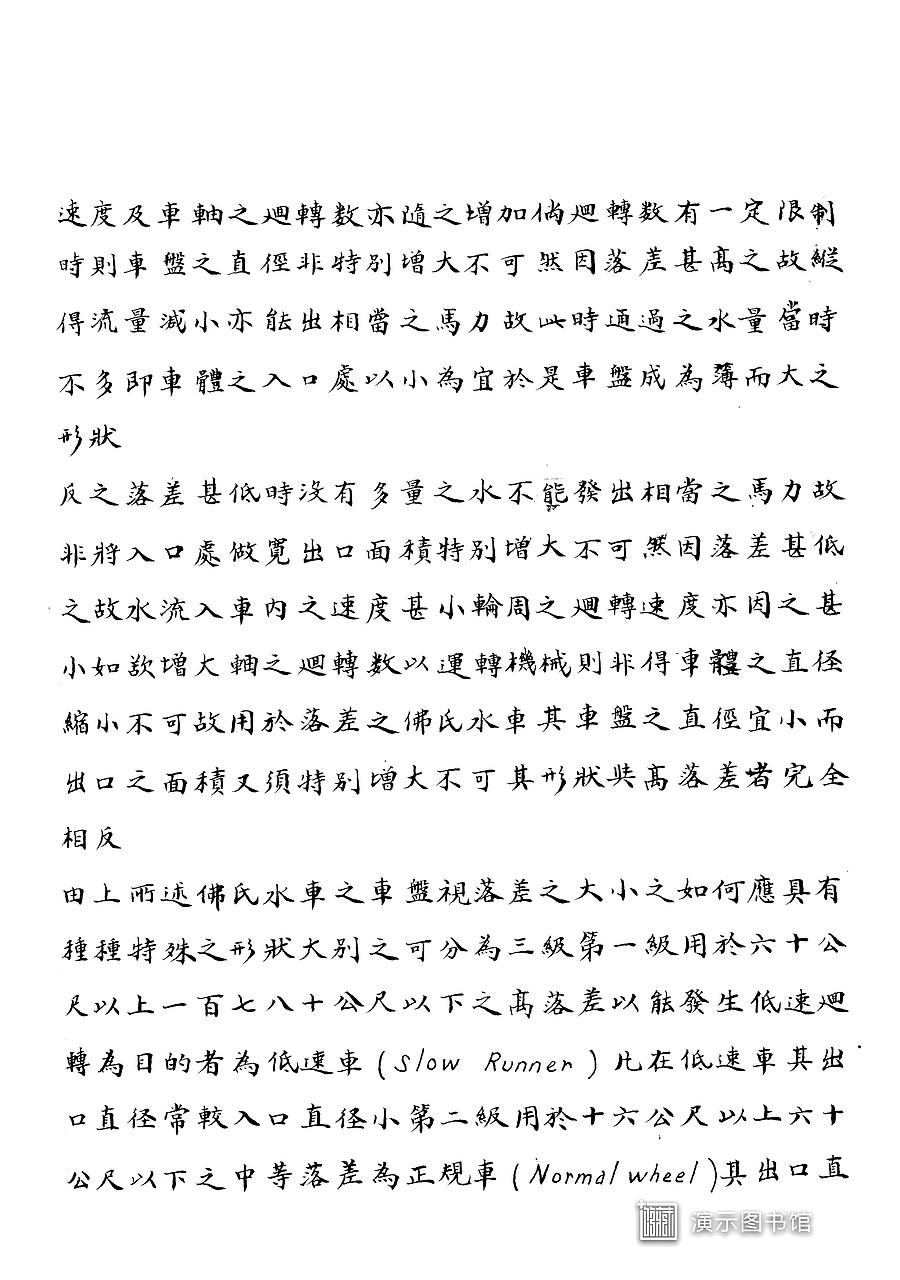 速度及車軸之廻轉数亦隨之增加倘廻轉数有一定限制
時則車盤之直徑非特別增大不可然因落差甚高之故縱
得流量减小亦能出相當之馬力故此時通過之水量當時
不多即車體之入口處以小為宜於是車盤成為薄而大之
形狀
反之落差甚低時没有多量之水不能發出相當之馬力故
非將入口處做寬出口面積特別增大不可然因落差甚低
之故水流入車内之速度甚小輪周之廻轉速度亦因之甚
小如欲增大軸之廻轉数以運轉機械則非得車體之直径
縮小不可故用於落差之佛氏水車其車盤之直徑宜小而
出口之面積又須特別增大不可其形狀與高落差者完全
相反
由上所述佛氏水車之車盤視落差之大小之如何應具有
種種特殊之形狀大别之可分為三級第一級用於六十公
尺以上一百七八十公尺以下之高落差以能發生低速廻
轉為目的者為低速車(Slow Runner)凡在低速車其出
口直徑常較入口直徑小第二級用於十六公尺以上六十
公尺以下之中等落差為正規車(Normal wheel)其出口直
演示图书馆